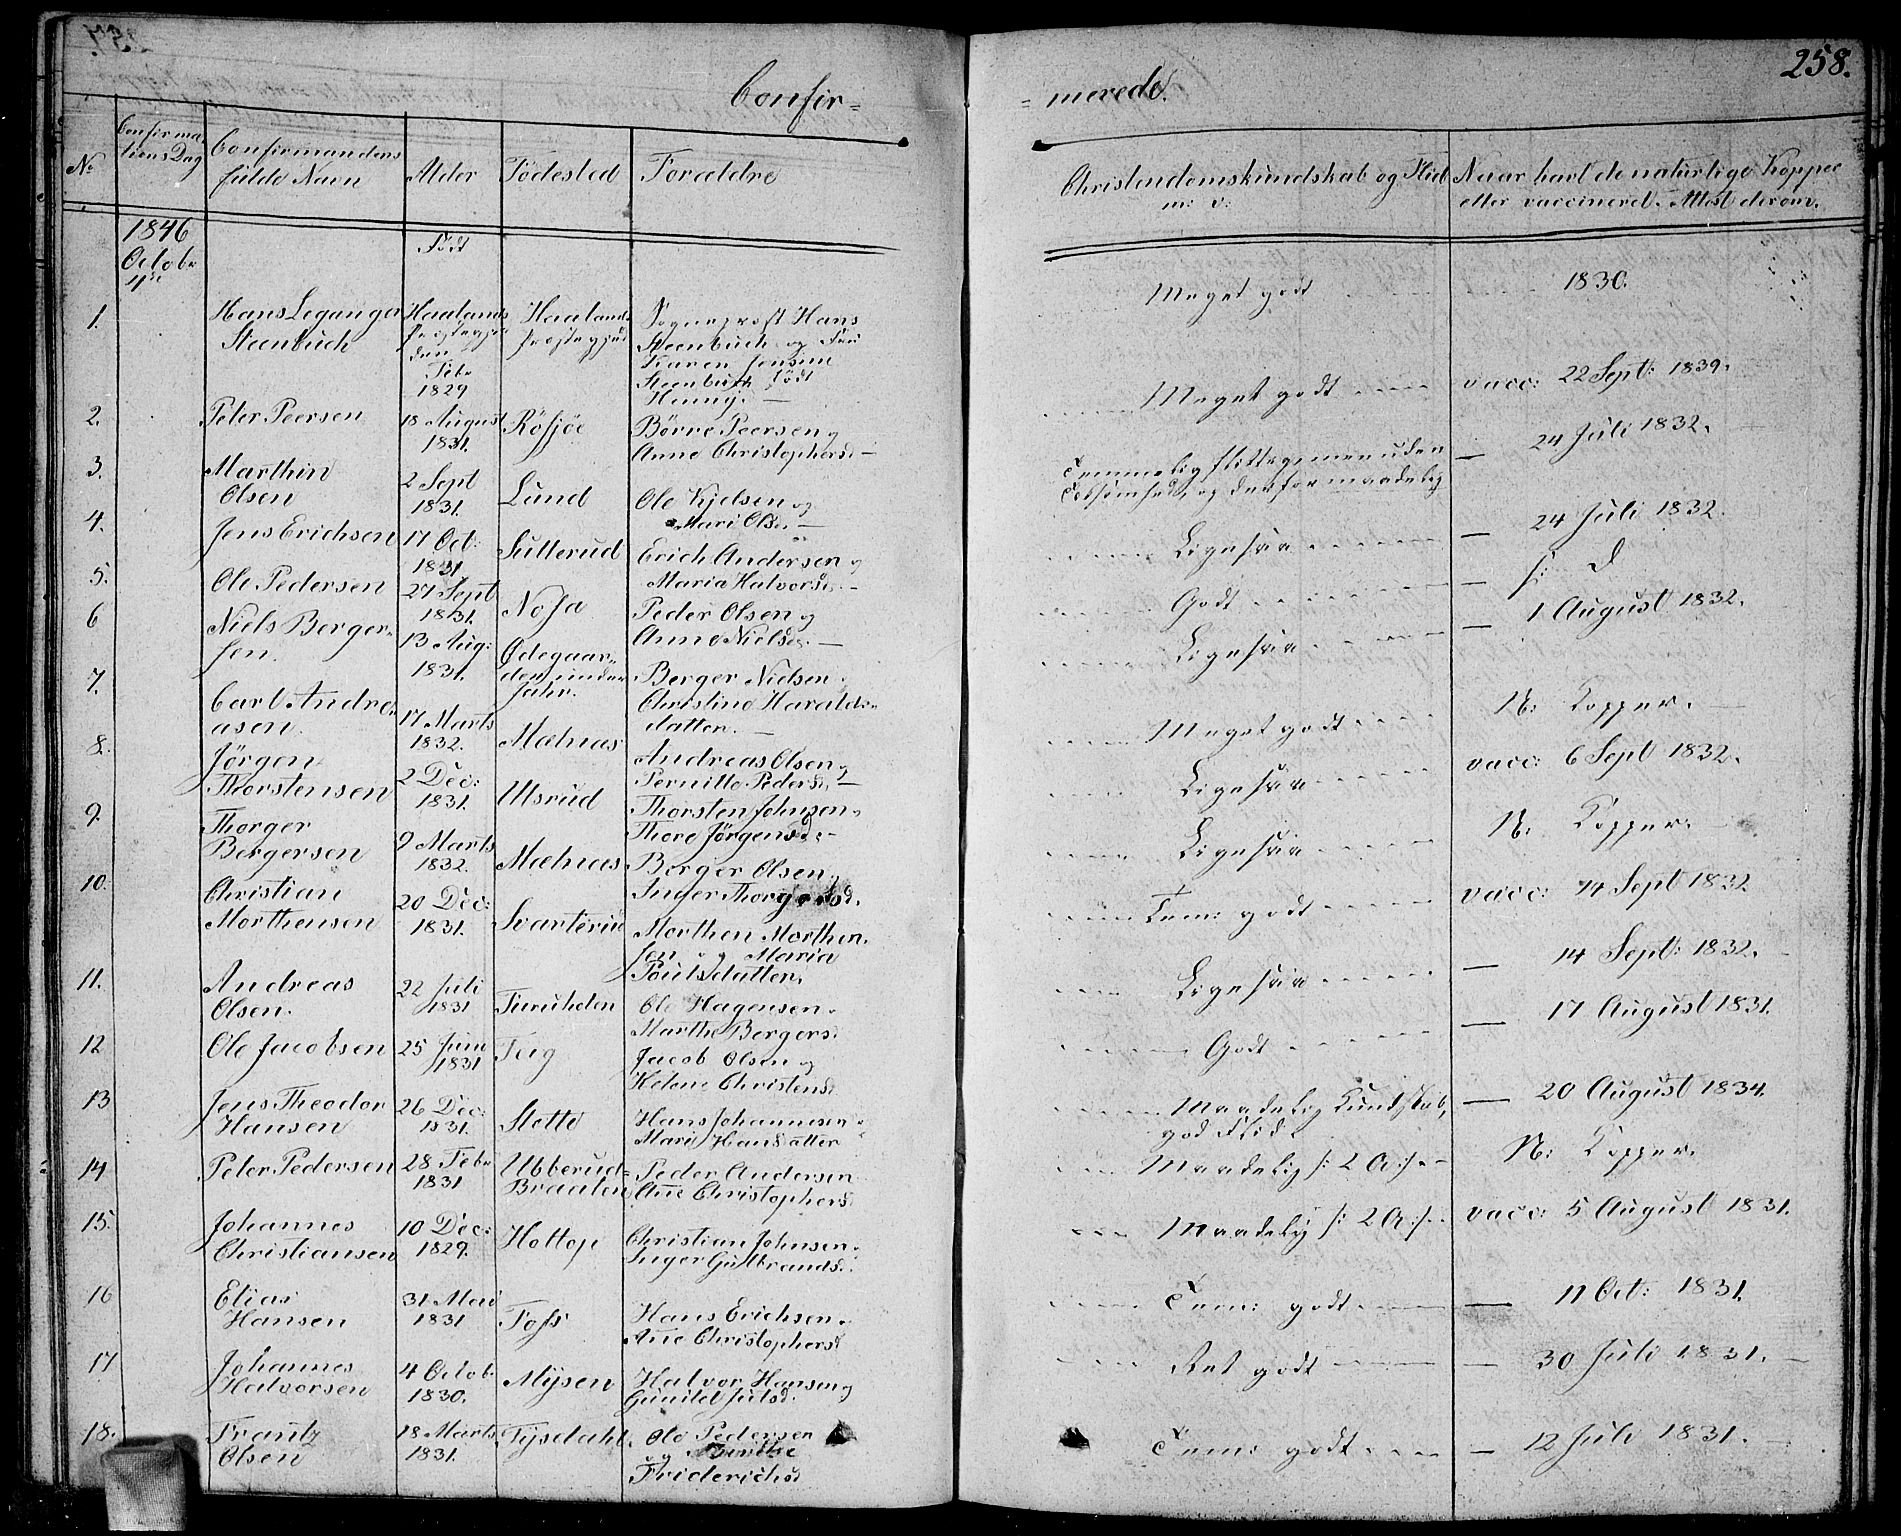 258.
Confir=
=merede.
No
Confirma-
tions Dag
Confirmandens
fulde Navn
Alder
Födested
Forældre
Christendomskundskab og Flid
m: v:
Naar havt de naturlige Kopper
eller vaccineret. Attest derom.
1846
Octobr
4de
Födt
1.
Hans Leganger
Steenbuch
Haalands
Præstegje
den
Febr
1829
Haalands
Præstegjeld
Sogneprost Hans
Steenbuch og Fru
Karen Jensine
Steenbuch födt
Henny. —
Meget godt
1830.
2.
Peter Peersen
18 August
1831.
Rösjöe
Börre Peersen og
Anne Christophersd. —
Meget godt
vacc: 22 Sept: 1839.
3.
Marthin
Olsen
2 Sept
1831.
Lund
Ole Kjelsen og
Mari Olsd. —
Temmelig flittig, men uden
og derfor maadelig
— 24 Juli 1832.
4.
Jens Erichsen
17 Oct:
1831
Sutterud
Erich Andersen og
Maria Halvorsd. —
Ligesaa
— 24 Juli 1832.
5.
Ole Pedersen
27 Sept
1831.
Nosa
Peder Olsen og
Anne Nielsd. —
Godt
— s: D
6
Niels Berger-
sen.
13 Aug:
1831.
Ödegaar-
den under
Jahr.
Berger Nielsen
Christine Haralds-
datter. —
Ligesaa
— 1 August 1832.
7.
Carl Andre-
asen.
17 Marts
1832.
Mælnæs
Andreas Olsen og
Pernille Pedersd. —
Meget godt
N: Kopper. —
8.
Jörgen
Thorstensen
2 Dec:
1831.
Ulsrud
Thorsten Johnsen
Thore Jörgensd. —
Ligesaa
vacc: 6 Sept 1832.
9.
Thorger
Bergersen
9 Marts
1832.
Mælnæs
Berger Olsen og
Inger Thorgersd.
Ligesaa
N: Kopper. —
10.
Christian
Morthensen
20 Dec:
1831.
Svarterud
Morthen Morthen-
sen og Maria
Poulsdatter.
Tem: godt
vacc: 14 Sept 1832
11.
Andreas
Olsen.
22 Juli
1831
Ole Hagensen
Marthe Bergersd.
Ligesaa
— 14 Sept: 1832.
12
Ole Jacobsen
25 Juni
1831
Teig
Jacob Olsen og
Helene Christensd.
Godt
— 17 August 1831.
13
Jens Theodor
Hansen
26 Dec:
1831.
Slette
Hans Johannesen
Mari Hansdatter
Maadelig Kundskab,
god Flid.
— 20 August 1834.
14
Peter Pedersen
28 Febr
1831
Ubberud=
Braaten
Peder Andersen
Ane Christophersd.
Maadelig /: 2 G :/. —
N: Kopper.
15.
Johannes
Christiansen
10 Dec:
1829.
Holtop
Christian Johnsen
Inger Gulbrandsd.
Maadelig /: 2 G :/.
vacc: 5 August 1831.
16
Elias
Hansen
31 Mai
1831
Foss
Hans Erichsen
Ane Christophersd
Tem: godt
— 11 Oct: 1831.
17
Johannes
Halvorsen
4 Octob.
1830.
Mysen
Halvor Hansen og
Gunild Julsd.
Ret godt
— 30 Juli 1831. —
18.
Frantz
Olsen
18 Marts
1831.
Tysdahl.
Ole Pedersen
og
Friderichsd
Tem: godt
— 12 Juli 1831.